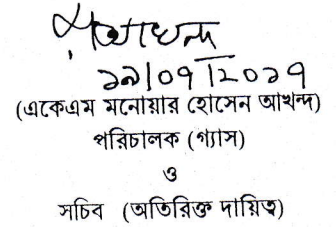 ১৯/০৭/২০১৭
(একেএম মনোয়ার হোসেন আখন্দ)
পরিচালক (গ্যাস)
ও
সচিব (অতিরিক্ত দায়িত্ব)